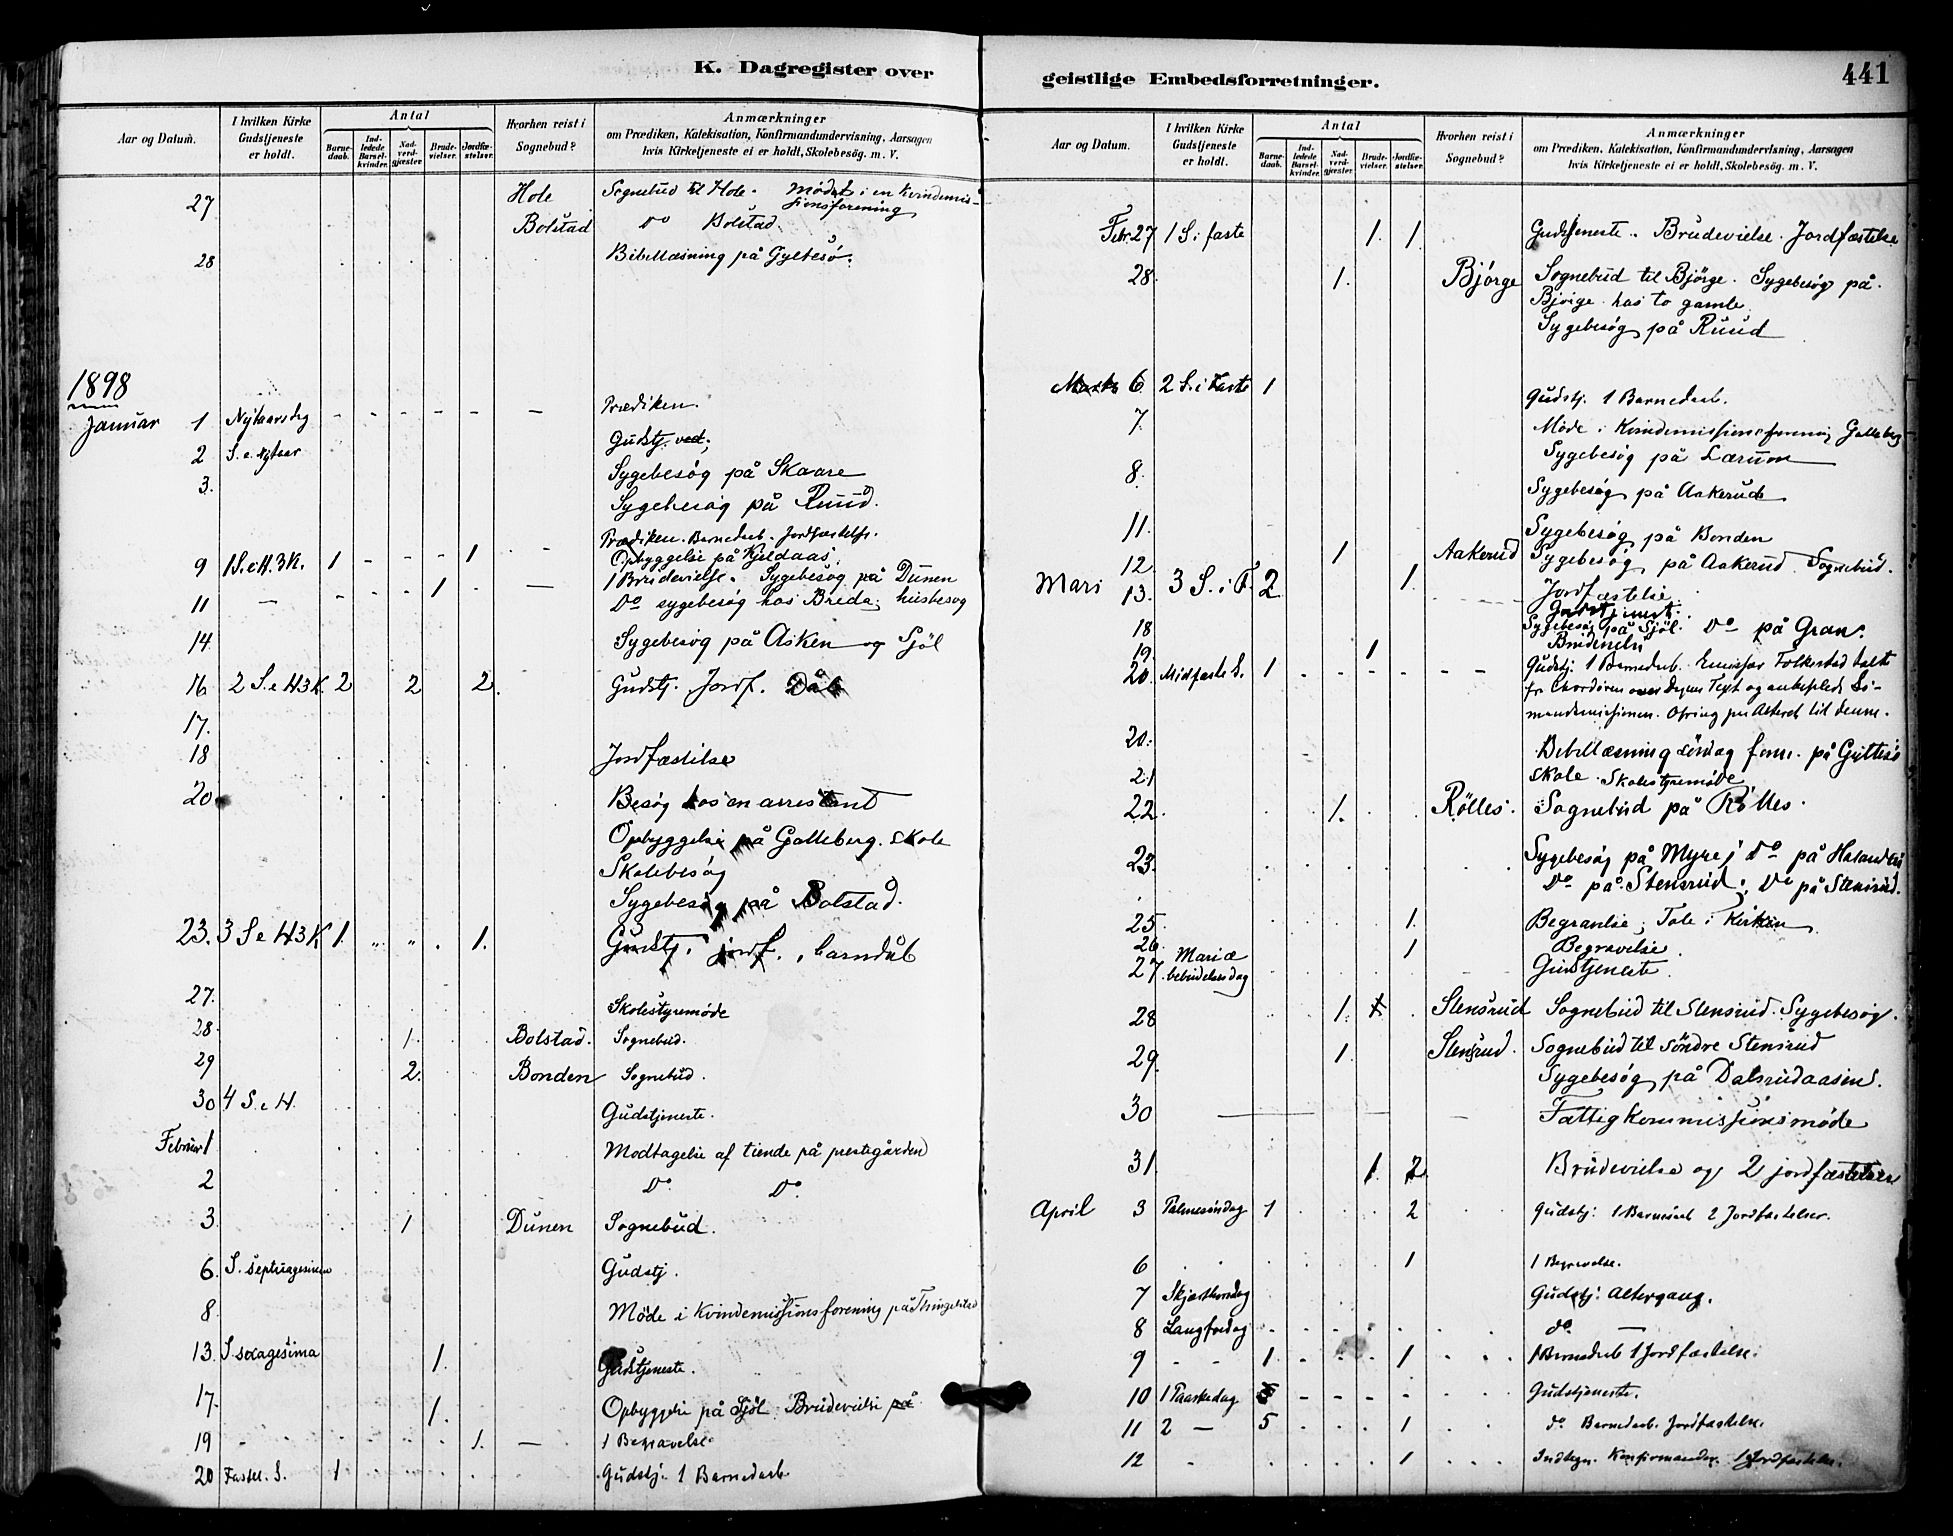 K. Dagregister over
Aar og Datum.
I hvilken Kirke Gudstjeneste er holdt.
Antal
Barnedaab.
Indledede Barselkvinder.
Nadverdgjæster.
Brudevielser.
Jordfæstelser.
Hvorhen reist i Sognebud?
Anmærkninger
om Prædiken, Katekisation, Konfirmandundervisning, Aarsagen
hvis Kirketjeneste ei er holdt, Skolebesög. m. V.
27 Hole Sognebud til Hole. Mödet i en Kvindemis-
sionsforening
Bolstad Do Bolstad
28 Bibellæsning på Gyltesö.
1898
Januar 1 Nytaarsdag - - - - - - Prædiken.
2 S. e. Nytaar Gudstj.
3. Sygebesög på Skaare
Sygebesög på Ruud.
Prædiken. Barnedaab. Jordfæstelse.
9 1 S. e. H. 3 K. 1 - - - 1 - Opbyggelse på Kjeldaas.
11 - - - - 1 - 1 Brudevielse. Sygebesög på Dunen
Do sygebesög hos Breda; husbesög
14. Sygebesög på Asken og Sjöl
16 2 S. e H 3 K. 2 2 2. Gudstj. Jordf. Dåb
17.
18 Jordfæstelse
20 Besög hos en arrestant
Opbyggelse på Galleberg. skole
Skolebesög
Sygebesög på Bolstad.
23. 3 S e H 3 K 1. " " . 1. Gudstj. jordf., barndåb
27. Skolestyremöde
28 1. Bolstad. Sognebud.
29 2. Bonden Sognebud.
30 4 S. e H. Gudstjeneste.
Februar 1 Modtagelse af tiende på prestegården
2 Do Do
3 1 Dunen Sognebud.
6. S. septuagesima Gudstj.
8 Möde i Kvindemissionsforening på Thingelstad
13. S sexagesima 1. Gudstjeneste.
17. 1. Opbyggelse på Sjöl. Brudevielse på
19 1. - 1 Begravelse
20 Fastel. S. 1 Gudstj. 1 Barnedaab
geistlige Embedsforretninger.
441
Aar og Datum.
I hvilken Kirke Gudstjeneste er holdt.
Antal
Barnedaab.
Indledede Barselkvinder.
Nadverdgjæster.
Brudevielser.
Jordfæstelser.
Hvorhen reist i Sognebud?
Anmærkninger
om Prædiken, Katekisation, Konfirmandundervisning, Aarsagen
hvis Kirketjeneste ei er holdt, Skolebesög. m. V.
Febr. 27 1 S. i faste 1. 1. Gudstjeneste. Brudevielse. Jordfæstelse
28. 1. Bjørge Sognebud til Bjørge. Sygebesög på
Bjørge hos to gamle
Sygebesög på Ruud
Marts 6 2 S. i Faste 1 Gudstj. 1 Barnedaab.
7. Möde i Kvindemissionsforening Galleberg
Sygebesög på Lærum
8. Sygebesög på Aakerud
11. Sygebesög på Bonden
12 1 Aakerud Sygebesög på Aakerud. Sognebud.
Mars 13. 3 S. i F. 2 1. Jordfæstelse
Gudstjenest.
18 Sygebesög på Sjöl. Do på Gran.
19 1 Brudevielse
20. Midfaste S. 1 - - - - - Gudstj. 1 Barnedaab. Emissær Folkestad talte
fra Chordören over Dagens Text og anbefalede Sö-
mandsmissionen. Ofring på Alteret til denne.
20. Bibellæsning söndag form. på Gyltesö
21 skole. Skolestyremöde
22 1. Rölles. Sognebud på Rölles.
23. Sygebesög på Myre; Do på
Do på Stensrud; Do på Stensrud.
25 1. Begravelse; Tale i Kirken
26 1 Begravelse.
27 Mariæ bebudelsesdag Gudstjeneste.
28 1. 1 Stensrud Sognebud til Stensrud. Sygebesög.
29. 1. Stensrud. Sognebud til söndre Stensrud
Sygebesög på Dalsrudaasen.
30 - - Fattigkommissionsmöde
31. 1. 2 Brudevielse og 2 jordfæstelser
April 3 Palmesöndag 1 2 Gudstj. 1 Barnedaab 2 Jordfæstelser.
6 1 1 Begravelse.
7 Skjærthorsdag Gudstj. Altergang.
8 Langfredag do -
9 - - 1 1 1 Barnedaab 1 Jordfæstelse.
10 1 Paaskedag Gudstjeneste.
11 2 - 5 1 do Barnedaab. Jordfæstelse.
12 1 Indtegn. Konfirmander. 1 Jordfæstelse.